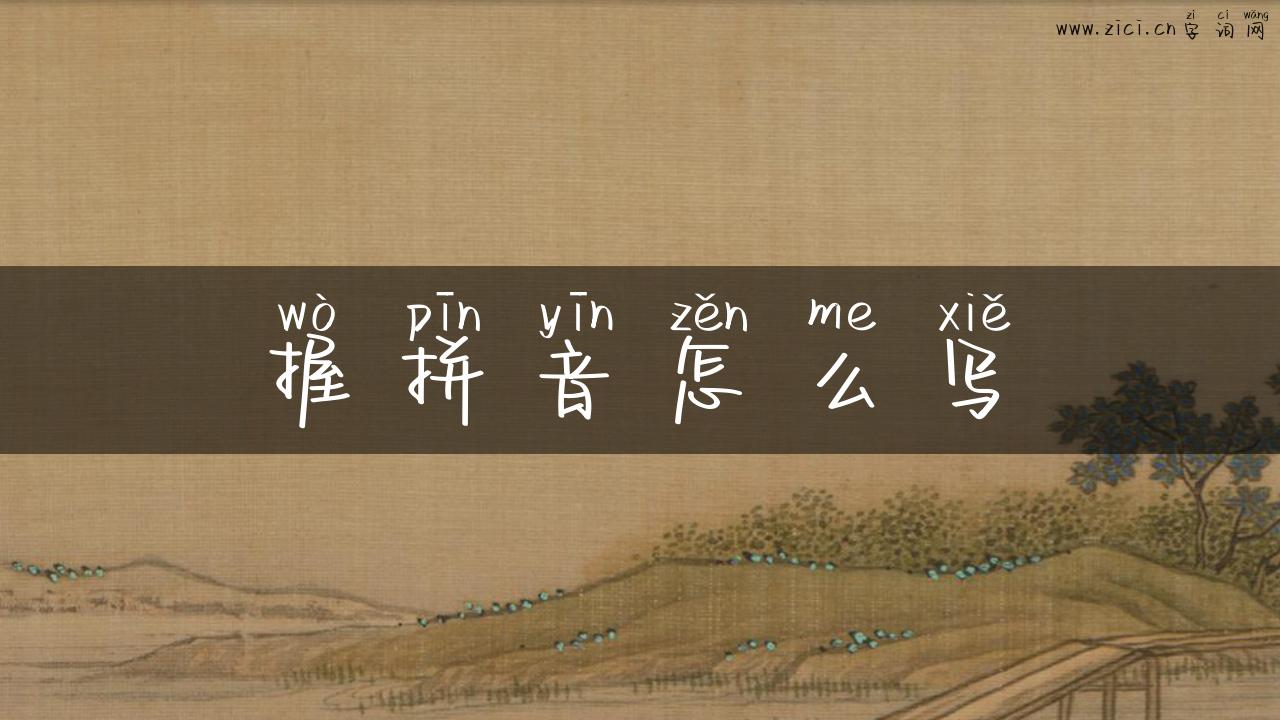 zì cí wǎng
www.zici.cn字词网
wò pīn yīn zěn me xiě
握拼音怎么写